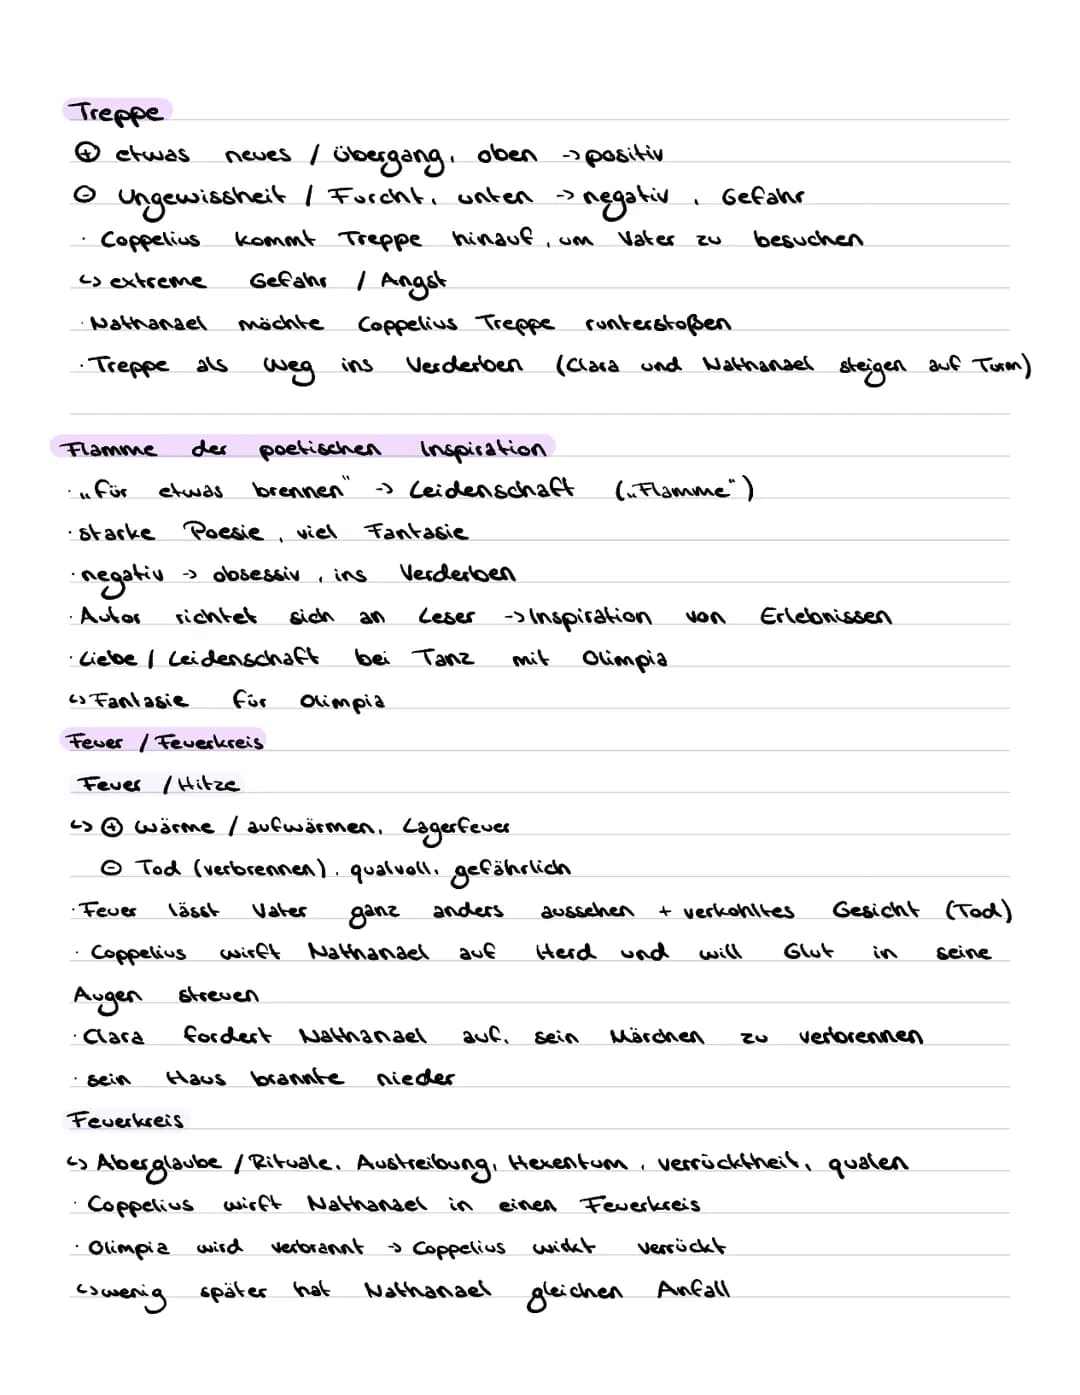 Treppe
⊕ etwas neues / Übergang, oben -> positiv
⊖ Ungewissheit / Furcht, unten -> negativ, Gefahr
· Coppelius kommt Treppe hinauf, um Vater zu besuchen
↳ extreme Gefahr / Angst
· Nathanael möchte Coppelius Treppe runterstoßen
· Treppe als Weg ins Verderben (Clara und Nathanael steigen auf Turm)
Flamme der poetischen Inspiration
· „für etwas brennen" -> Leidenschaft („Flamme")
· starke Poesie, viel Fantasie
· negativ -> obsessiv, ins Verderben
· Autor richtet sich an Leser -> Inspiration von Erlebnissen
· Liebe / Leidenschaft bei Tanz mit Olimpia
↳ Fantasie für Olimpia
Feuer / Feuerkreis
Feuer / Hitze
↳ ⊕ Wärme / aufwärmen, Lagerfeuer
⊖ Tod (verbrennen), qualvoll, gefährlich
· Feuer lässt Vater ganz anders aussehen + verkohltes Gesicht (Tod)
· Coppelius wirft Nathanael auf Herd und will Glut in seine
Augen streuen
· Clara fordert Nathanael auf, sein Märchen zu verbrennen
· sein Haus brannte nieder
Feuerkreis
↳ Aberglaube / Rituale, Austreibung, Hexentum, verrücktheit, qualen
· Coppelius wirft Nathanael in einen Feuerkreis
· Olimpia wird verbrannt -> Coppelius wirkt verrückt
↳ wenig später hat Nathanael gleichen Anfall